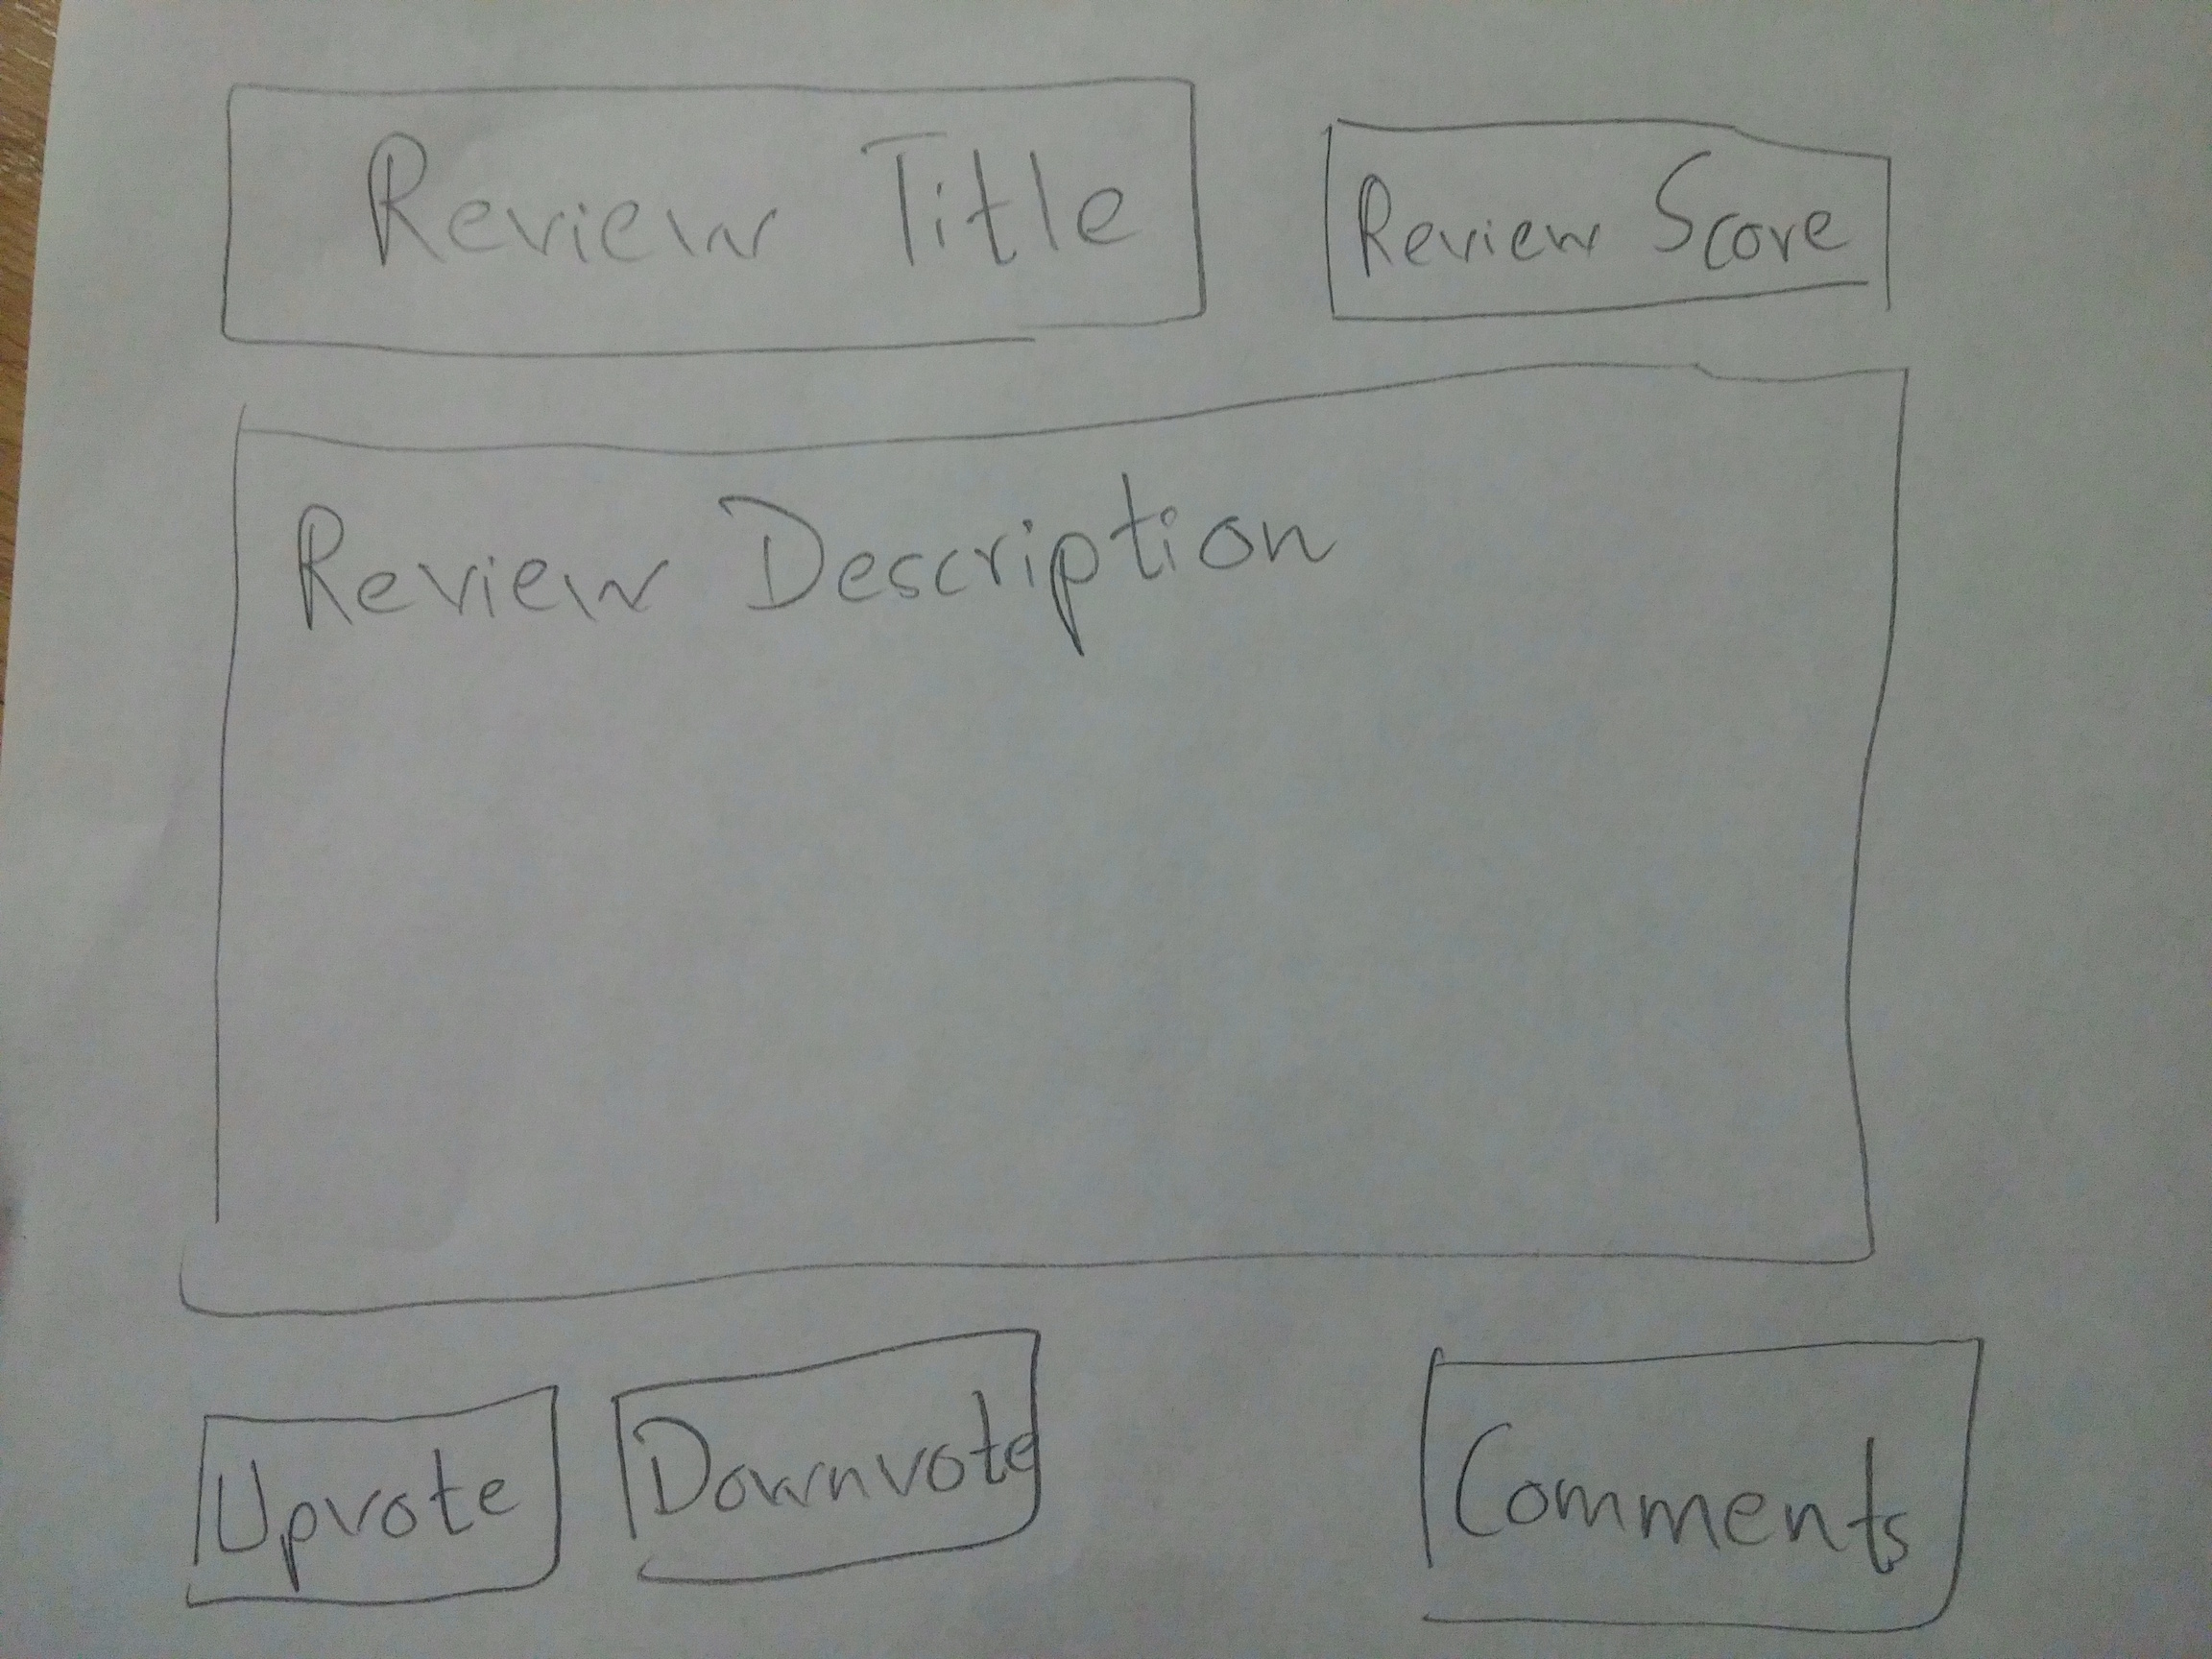 Review Title
Review Score
Review Description
Upvote
Downvote
Comments